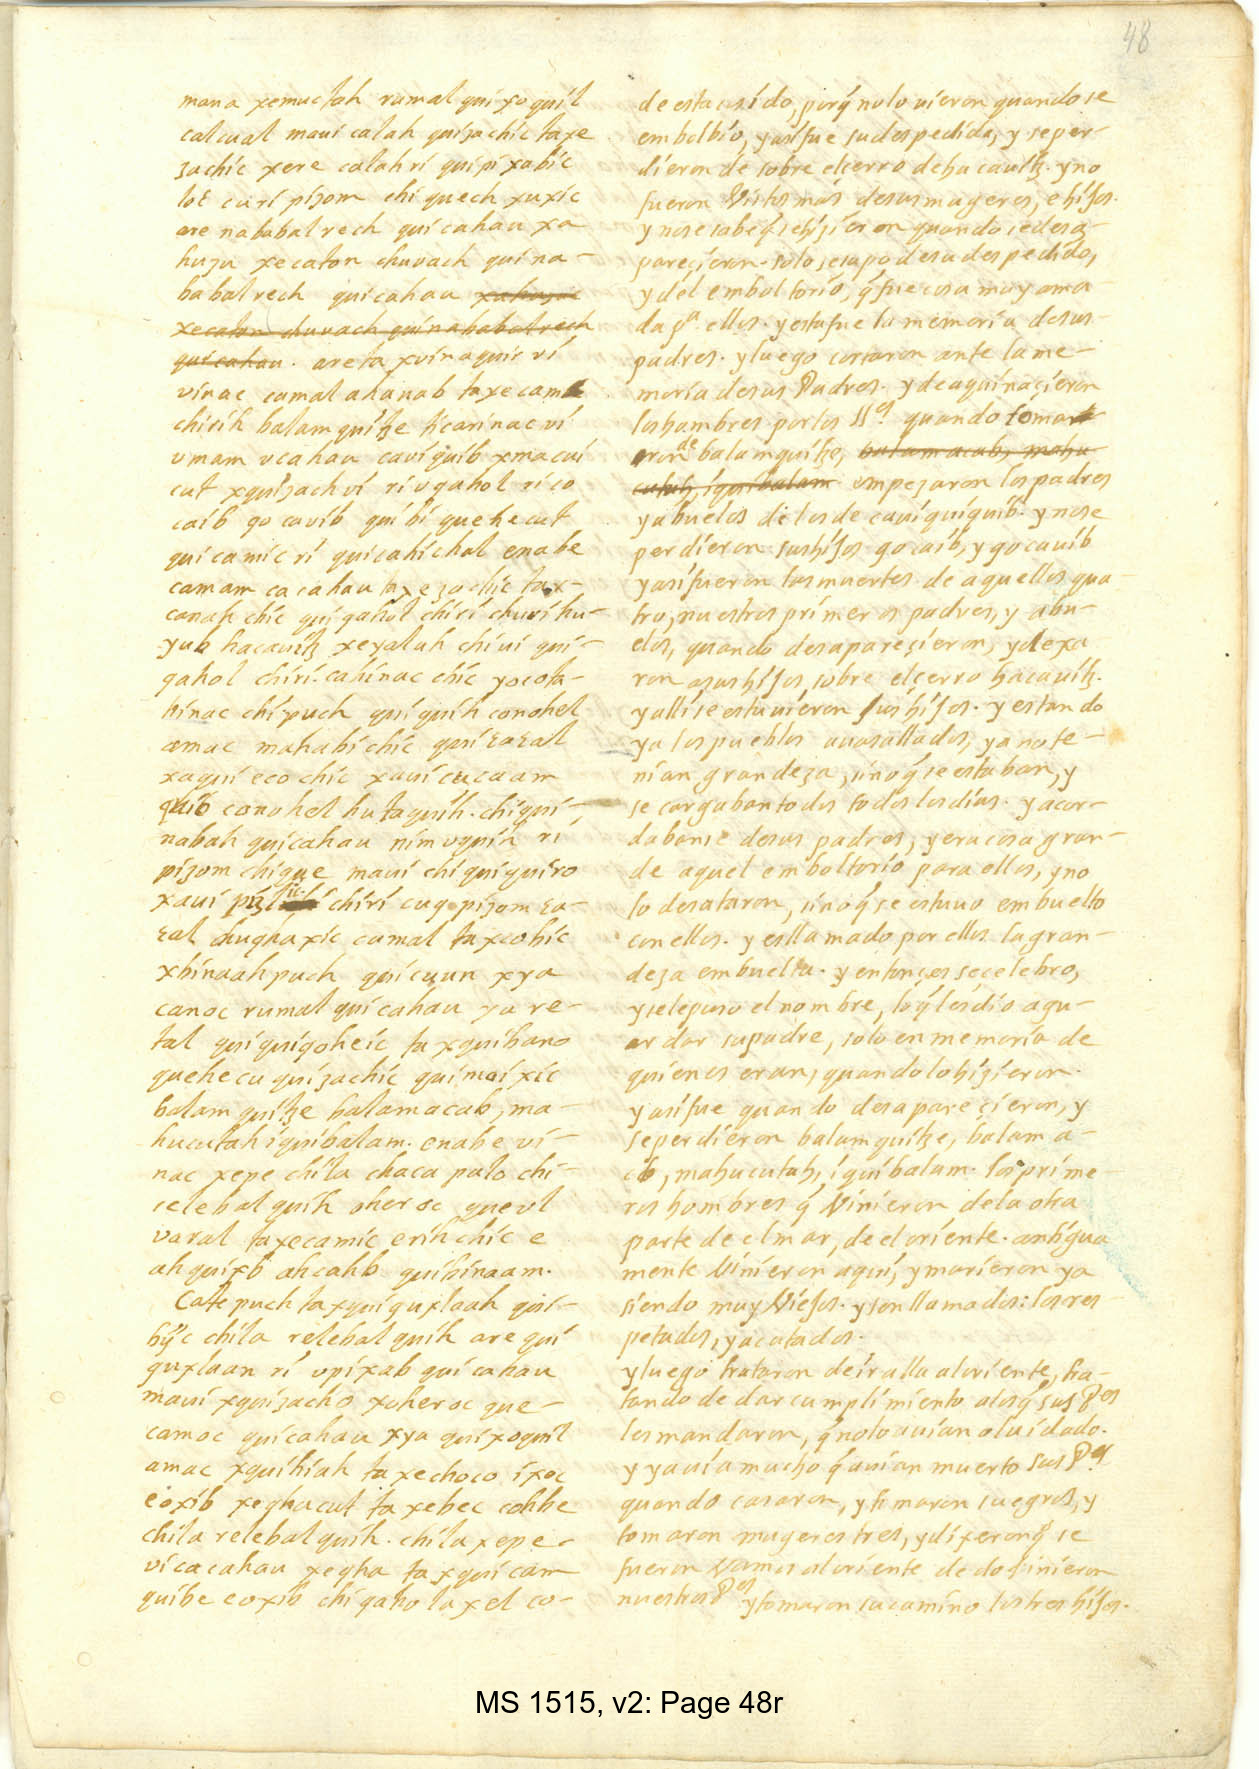 48
mana xemuctah rumal qui xoquil
calcual maui calah quizachic taxe
zachic xere calah ri qui pixabic
loc cu ri pizom chi quech xuxic
are nababal rech qui cahau xa
huzu xecaton chuuach qui na-
babal rech qui cahau xahuzuc
xecaton chuuach qui nababal rech
qui cahau. areta xuinaquir ri
vinac cumal ahanab taxecam
chirih balam quitze ticarinac ui
umam ucahau cauiquib xmacui
cut xquizach ui ri ugahol ri co
caib qo cauib qui bi quehecut
qui camic ri quicahichal enabe
camam cacahau taxezachic tax-
canah chic qui gahol chiri chuui hu-
yub hacauitz xeyaluh chi ui qui-
gahol chiri. cahinac chic yocota-
hinac chi puch qui quih conohel
amac mahabi chic qui εaεal
xaqui eco chic xaui cucaam
quib conohel hutaquih. chi qui-
nabah quicahau nim uquih ri
pizom chique maui chi qui quiro
xaui chiri cuqe pizom εa-
εal chughaxic cumal taxcobic
xbinaah puch qui cuun xya
canoc rumal qui cahau xa re-
tal qui quiqoheic ta xquibano
quehecu qui zachic qui maixic
balam quitze balamacab, ma-
hucutah iquibalam. enabe vi-
nac xepe chila chaca palo chi-
relebal quih oher oc que ul
varal taxecamic erih chic e
ah quixb ahcahb quibinaam.
Catepuch taxquiguxlaah qui-
bijc chila relebal quih are qui
guxlaan ri upixab quicahau
maui xquizacho xoher oc que-
camoc qui cahau xya qui xoquil
amac xquihiah taxechoco ixoc
eoxib xeghacut ta xebec cohbe
chila relebal quih. chila xepe-
vi cacahau xegha ta xquicam
quibe eoxib chi gahola xel co-
de esta asi do, porq̃ no lo uieron quando se
embolbio, y asi fue su despedida, y se per-
dieron de sobre el cerro de hacauitz. y no
fueron Vistos mas de sus mugeres, e hijos.
y no se sabe q̃ se hizieron quando se desa-
pareçieron. solo se supo de su despedida,
y del emboltorio, q̃ fue cosa muy ama
da pa. ellos. y esta fue la memoria de sus
padres. y luego cortaron ante la me-
moria de sus Padres. y de aqui naçieron
los hombres por los SSes quando tomar
aron de balam quitze, balam acab, mahu
cutah, iquibalam empezaron los padres
y abuelos de los de cauiquiquib. y no se
perdieron sus hijos qo caib, y qo cauib
y asi fueron las muertes de aquellos qua
tro, nuestros primeros padres, y abu-
elos, quando desapareçieron, y dexa
ron a sus hijos, sobre el cerro hacauitz.
y alli se estuuieron sus hijos. y estando
ya los pueblos auasallados, ya no te-
nian grandeza, sino q̃ se estaban, y
se cargaban todos todos los dias. y acor-
dabanse de sus padres, y era cosa gran-
de aquel emboltorio para ellos, y no
lo desataron, sino q̃ se estuuo embuelto
con ellos. y es llamado por ellos la gran-
deza embuelta. y entonçes se celebro,
y se le puso el nombre, lo q̃ les dio a gu-
ardar su padre, solo en memoria de
quienes eran, quando lo hizieron.
y asi fue quando desapareçieron, y
se perdieron balam quitze, balam a-
cab, mahucutah, iquibalam. los prime-
ros hombres q̃ Vinieron de la otra
parte de el mar, de el oriente. antigua
mente Vinieron aqui, y murieron ya
siendo muy Viejos. y son llamados: los res-
petados, y acatados.
y luego trataron de ir alla al oriente, tra-
tando de dar cumplimiento a lo q̃ sus Pes
les mandaron, q̃ no lo auian oluidado.
y ya auia mucho q̃ auian muerto sus Pes
quando casaron, y tomaron suegros, y
tomaron mugeres tres, y dixeron q̃ se
fueron Vamos al oriente de do Vinieron
nuestros Pes y tomaron su camino los tres hijos.
MS 1515, v2: Page 48r